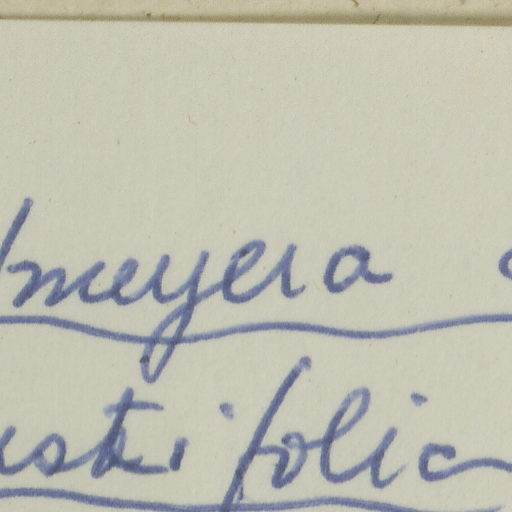 lmeyera
ustifolia